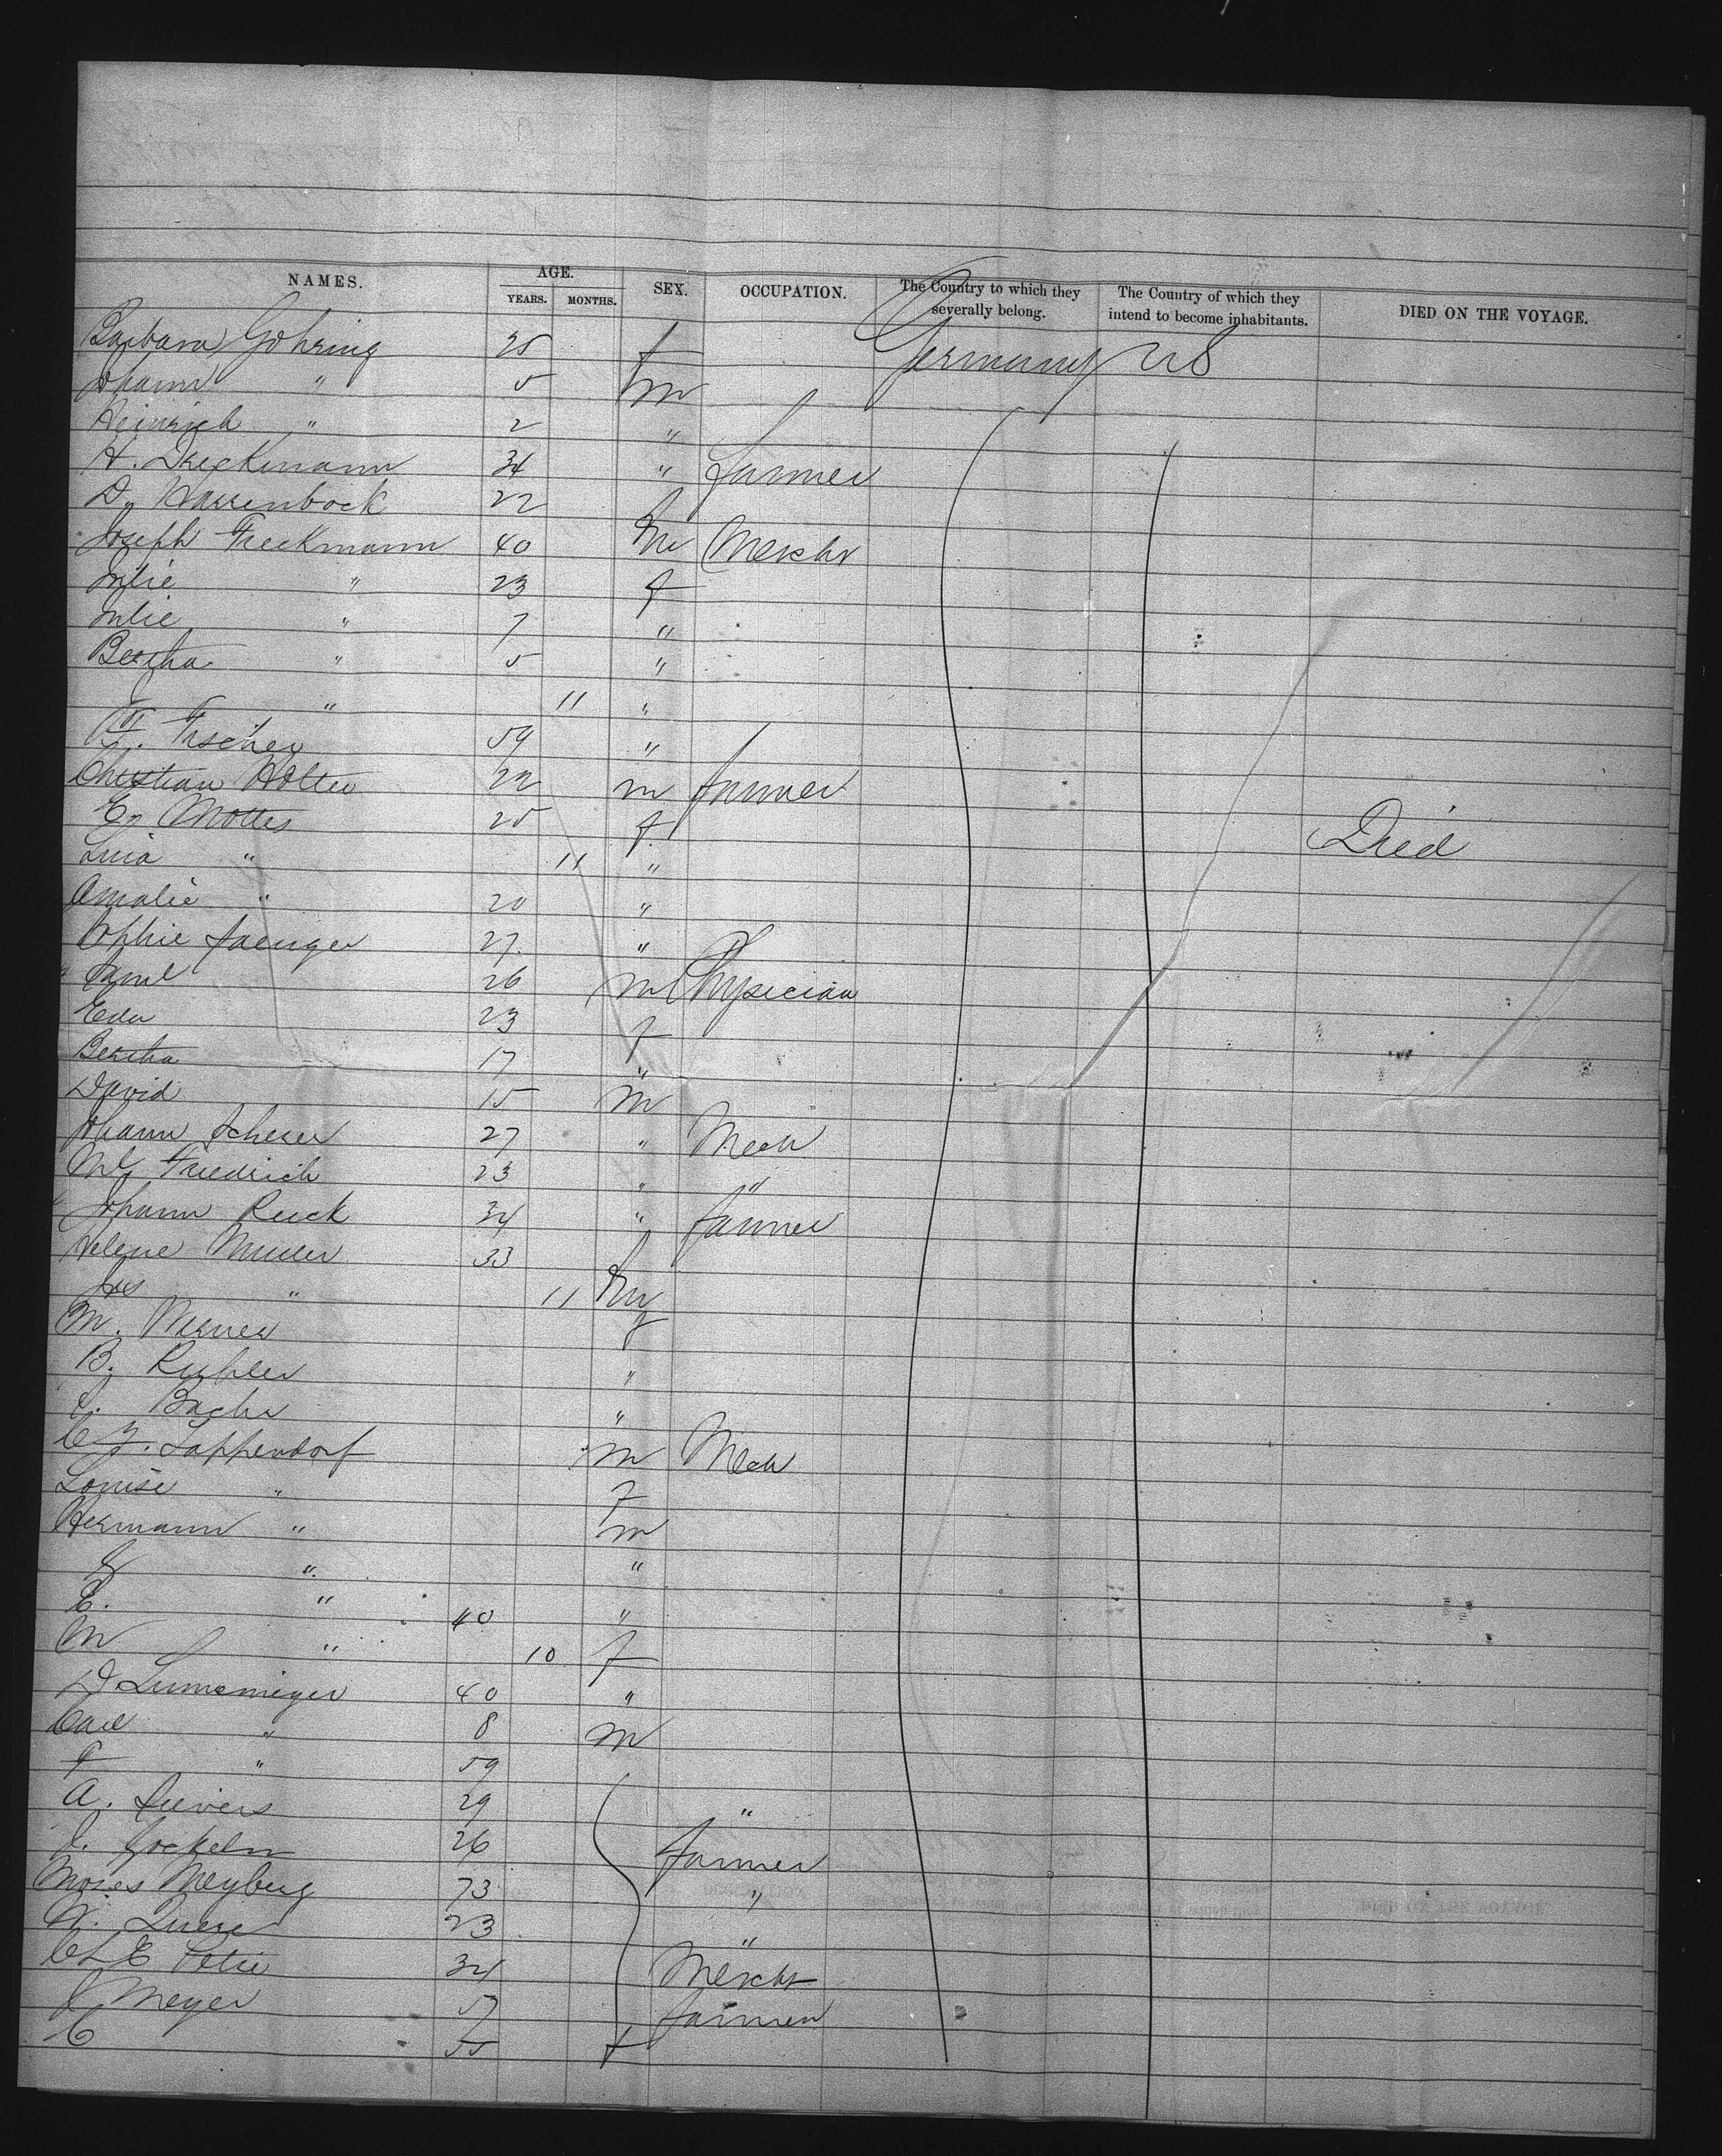 NAMES. AGE. YEARS. MONTHS. SEX. OCCUPATION. The Country to which they severally belong. The Country of which they intend to become inhabitants. DIED ON THE VOYAGE.
Barbara Gohring 25 f Germany US
Johann " 5 m
Heinrich " 2 "
H. Dreckmann 34 " farmer
D. Harrenbock 22
Joseph Freckmann 40 m Mercht
Julie " 23 f
Julie " 7 "
Bertha " 5 "
" 11 "
F. Fischer 59 "
Christian Holter 22 m farmer
E. Mottes 25 f
Lina " 11 " Died
Amalie " 20 "
Sophie Saenger 27 "
" Saml 26 m Physician
Eda 23 f
Bertha 17 "
David 15 m
Johann Scherer 27 " Mech
Friedrich 23 " "
Johann Reick 34 " farmer
Helene Muller 33
Jos " 11 m
M. Werner f
B. "
Bach "
Tappendorf m Mech
Louise " f
Hermann " m
" "
E. " 40 "
M " 10 f
D. 40 "
Carl " 8 m
F " 59
A. Sievers 29 "
J. 26 farmer
Moses Meyberg 73 "
H. 23 "
C L E Petri 34 Mercht
J Meyer 57 farmer
C 55 f